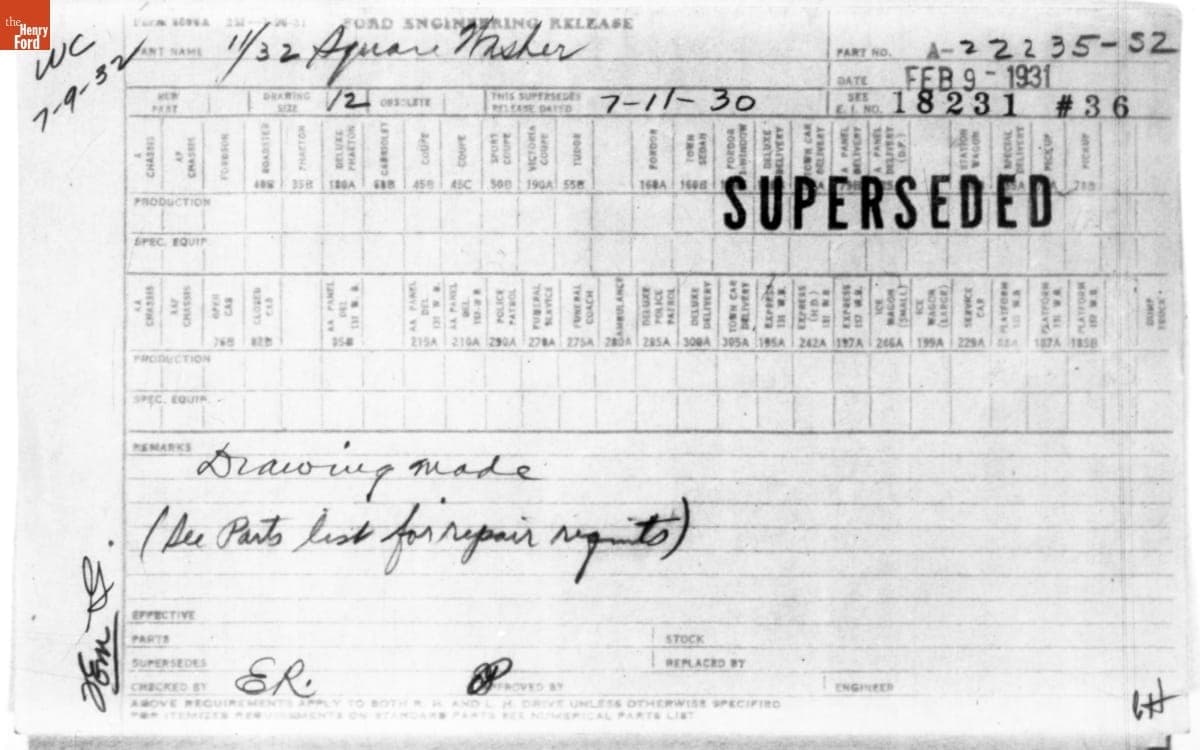 the Henry Ford
FORD ENGINEERING RELEASE
WC
7-9-32
PART NAME 11/32 Square Washer
PART NO. A-22235-S2
DATE FEB 9 - 1931
NEW PART DRAWING SIZE 12 OBSOLETE THIS SUPERSEDES RELEASE DATED 7-11-30 SEE E. I. NO. 18231 #36
A CHASSIS AF CHASSIS FORDSON ROADSTER PHAETON DELUXE PHAETON CABRIOLET COUPE COUPE SPORT COUPE VICTORIA COUPE TUDOR FORDOR TOWN SEDAN FORDOR DELUXE DELIVERY TOWN CAR DELIVERY A PANEL DELIVERY A PANEL DELIVERY (D.F.) STATION WAGON SPECIAL DELIVERY PICKUP PICKUP
40B 35B 180A 68B 45B 45C 50B 190A 55B 160A 160B 78B
SUPERSEDED
PRODUCTION
SPEC. EQUIP.
AA CHASSIS AAF CHASSIS OPEN CAB CLOSED CAB AA PANEL DEL 131 W.B. AA PANEL DEL 131 W.B. AA PANEL DEL 157 W.B. POLICE PATROL FUNERAL SERVICE FUNERAL COACH AMBULANCE DELUXE POLICE PATROL DELUXE DELIVERY TOWN CAR DELIVERY EXPRESS 131 W.B. EXPRESS (H.D.) 131 W.B. EXPRESS 157 W.B. ICE WAGON (SMALL) ICE WAGON (LARGE) SERVICE CAR PLATFORM PLATFORM 131 W.B. PLATFORM 157 W.B. DUMP TRUCK
76B 82B 85B 215A 210A 290A 270A 275A 280A 285A 300A 305A 195A 242A 197A 246A 199A 229A 187A 185B
PRODUCTION
SPEC. EQUIP.
REMARKS
Drawing made
(See Parts list for repair reqmts)
EFFECTIVE
PARTS STOCK
SUPERSEDES REPLACED BY
CHECKED BY ER. APPROVED BY ENGINEER
ABOVE REQUIREMENTS APPLY TO BOTH R. H. AND L. H. DRIVE UNLESS OTHERWISE SPECIFIED
FOR ITEMIZED REQUIREMENTS ON STANDARD PARTS SEE NUMERICAL PARTS LIST